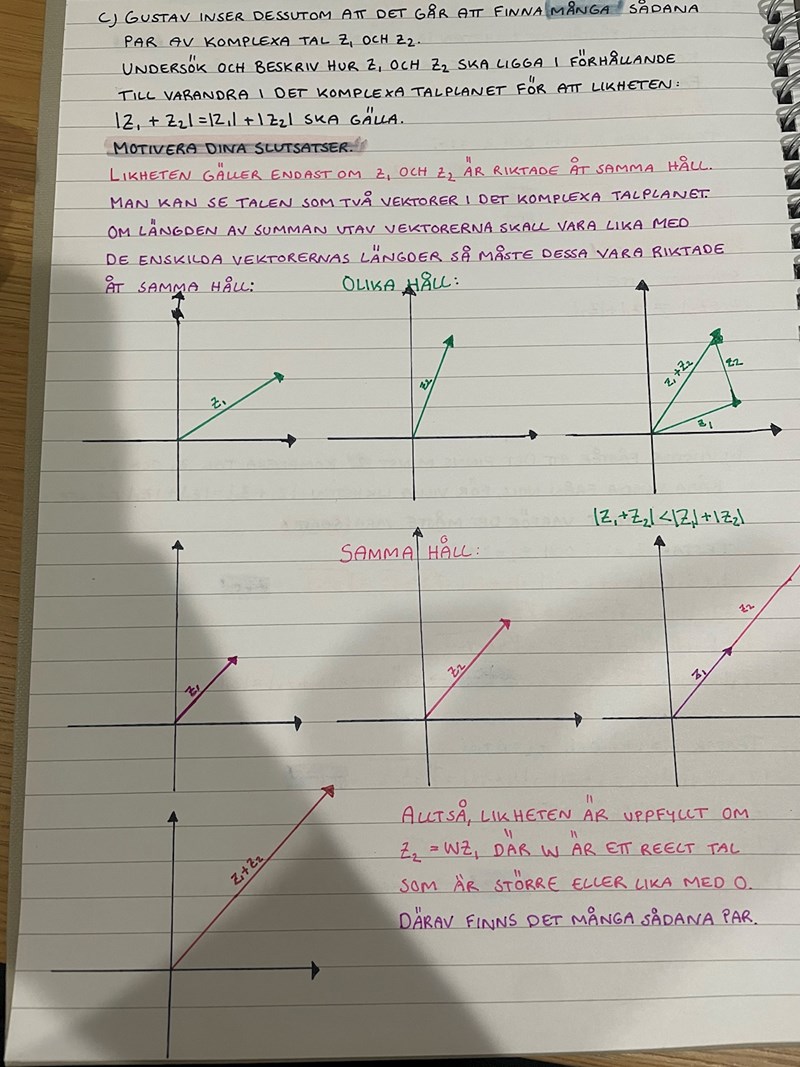 C) GUSTAV INSER DESSUTOM ATT DET GÅR ATT FINNA MÅNGA SÅDANA
PAR AV KOMPLEXA TAL Z₁ OCH Z₂.
UNDERSÖK OCH BESKRIV HUR Z₁ OCH Z₂ SKA LIGGA I FÖRHÅLLANDE
TILL VARANDRA I DET KOMPLEXA TALPLANET FÖR ATT LIKHETEN:
|Z₁ + Z₂| = |Z₁| + |Z₂| SKA GÄLLA.
MOTIVERA DINA SLUTSATSER.
LIKHETEN GÄLLER ENDAST OM Z₁ OCH Z₂ ÄR RIKTADE ÅT SAMMA HÅLL.
MAN KAN SE TALEN SOM TVÅ VEKTORER I DET KOMPLEXA TALPLANET.
OM LÄNGDEN AV SUMMAN UTAV VEKTORERNA SKALL VARA LIKA MED
DE ENSKILDA VEKTORERNAS LÄNGDER SÅ MÅSTE DESSA VARA RIKTADE
ÅT SAMMA HÅLL:
OLIKA HÅLL:
Z₁
Z₂
Z₁+Z₂
Z₂
Z₁
|Z₁+Z₂| < |Z₁| + |Z₂|
SAMMA HÅLL:
Z₁
Z₂
Z₂
Z₁
Z₁+Z₂
ALLTSÅ, LIKHETEN ÄR UPPFYLLT OM
Z₂ = WZ₁ DÄR W ÄR ETT REELT TAL
SOM ÄR STÖRRE ELLER LIKA MED 0.
DÄRAV FINNS DET MÅNGA SÅDANA PAR.